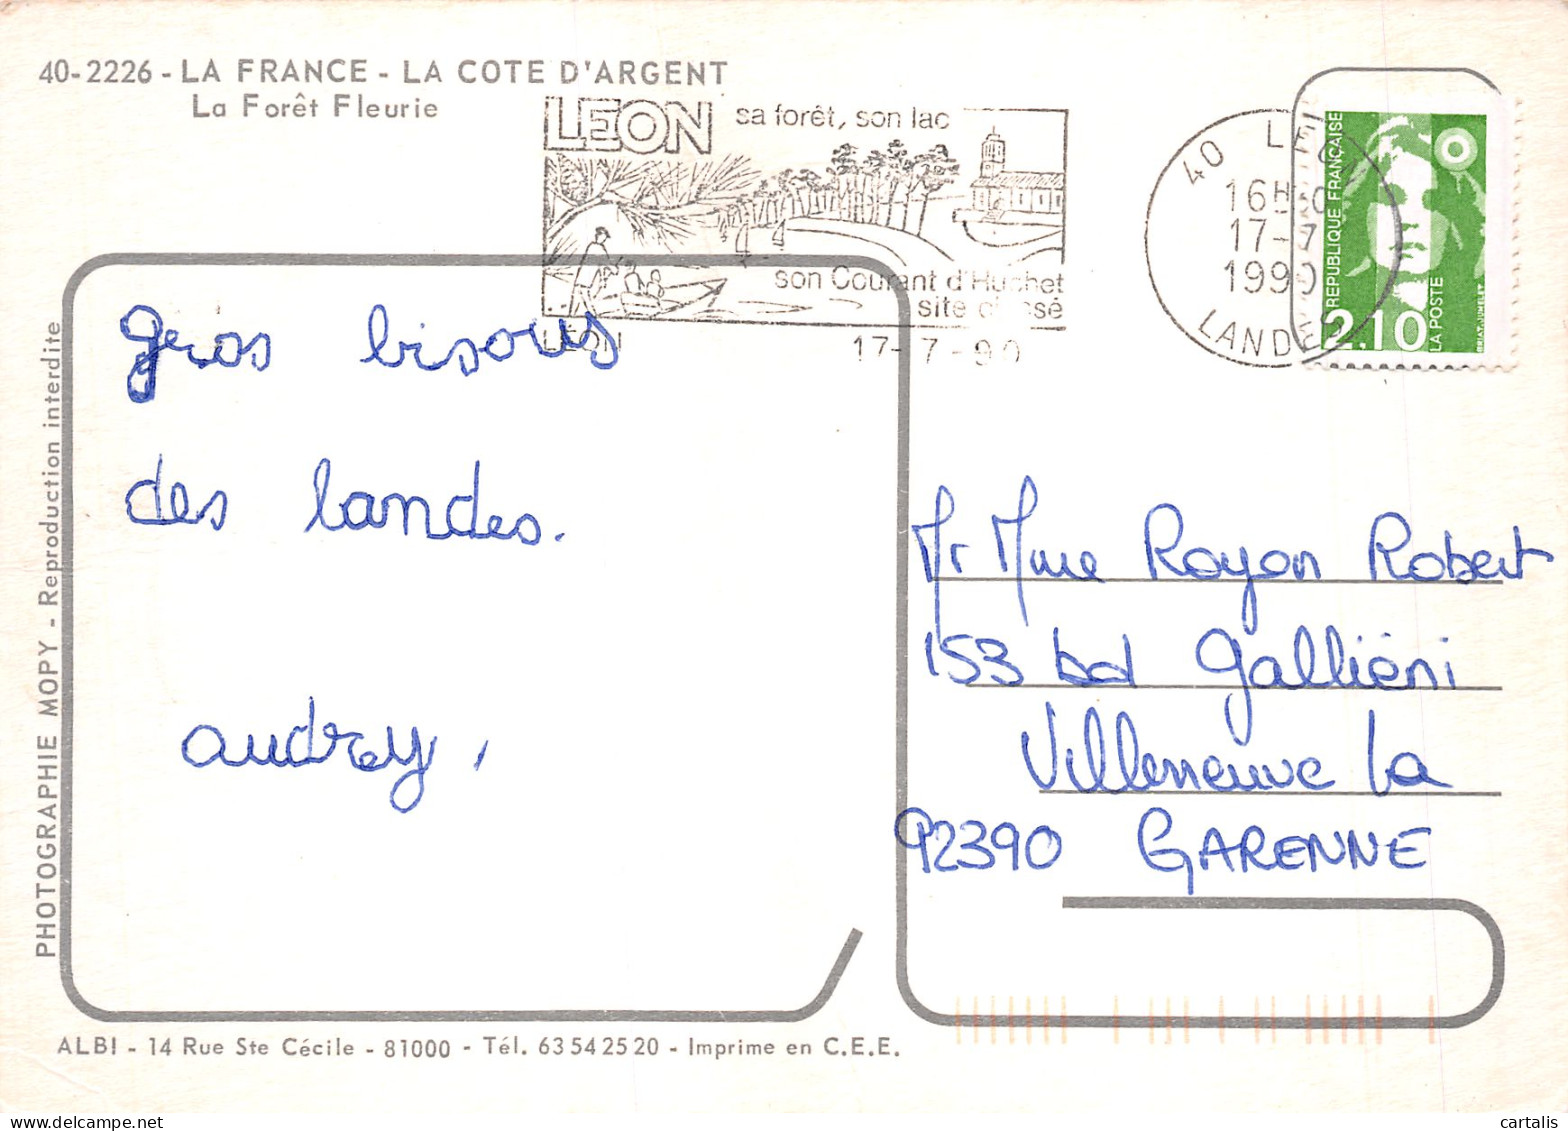 40-2226 - LA FRANCE - LA COTE D'ARGENT
La Forêt Fleurie
LEON sa forêt, son lac
son Courant d'Huchet
site classé
LEON 17-7-90
40 LEON
16H
17-7
1990
LANDES
REPUBLIQUE FRANÇAISE
2.10
LA POSTE
gros bisous
des landes.
audrey,
Mr Mme Royon Robert
153 bd Galliéni
Villeneuve la
92390 GARENNE
PHOTOGRAPHIE MOPY - Reproduction interdite
ALBI - 14 Rue Ste Cécile - 81000 - Tél. 63 54 25 20 - Imprime en C.E.E.
cartalis